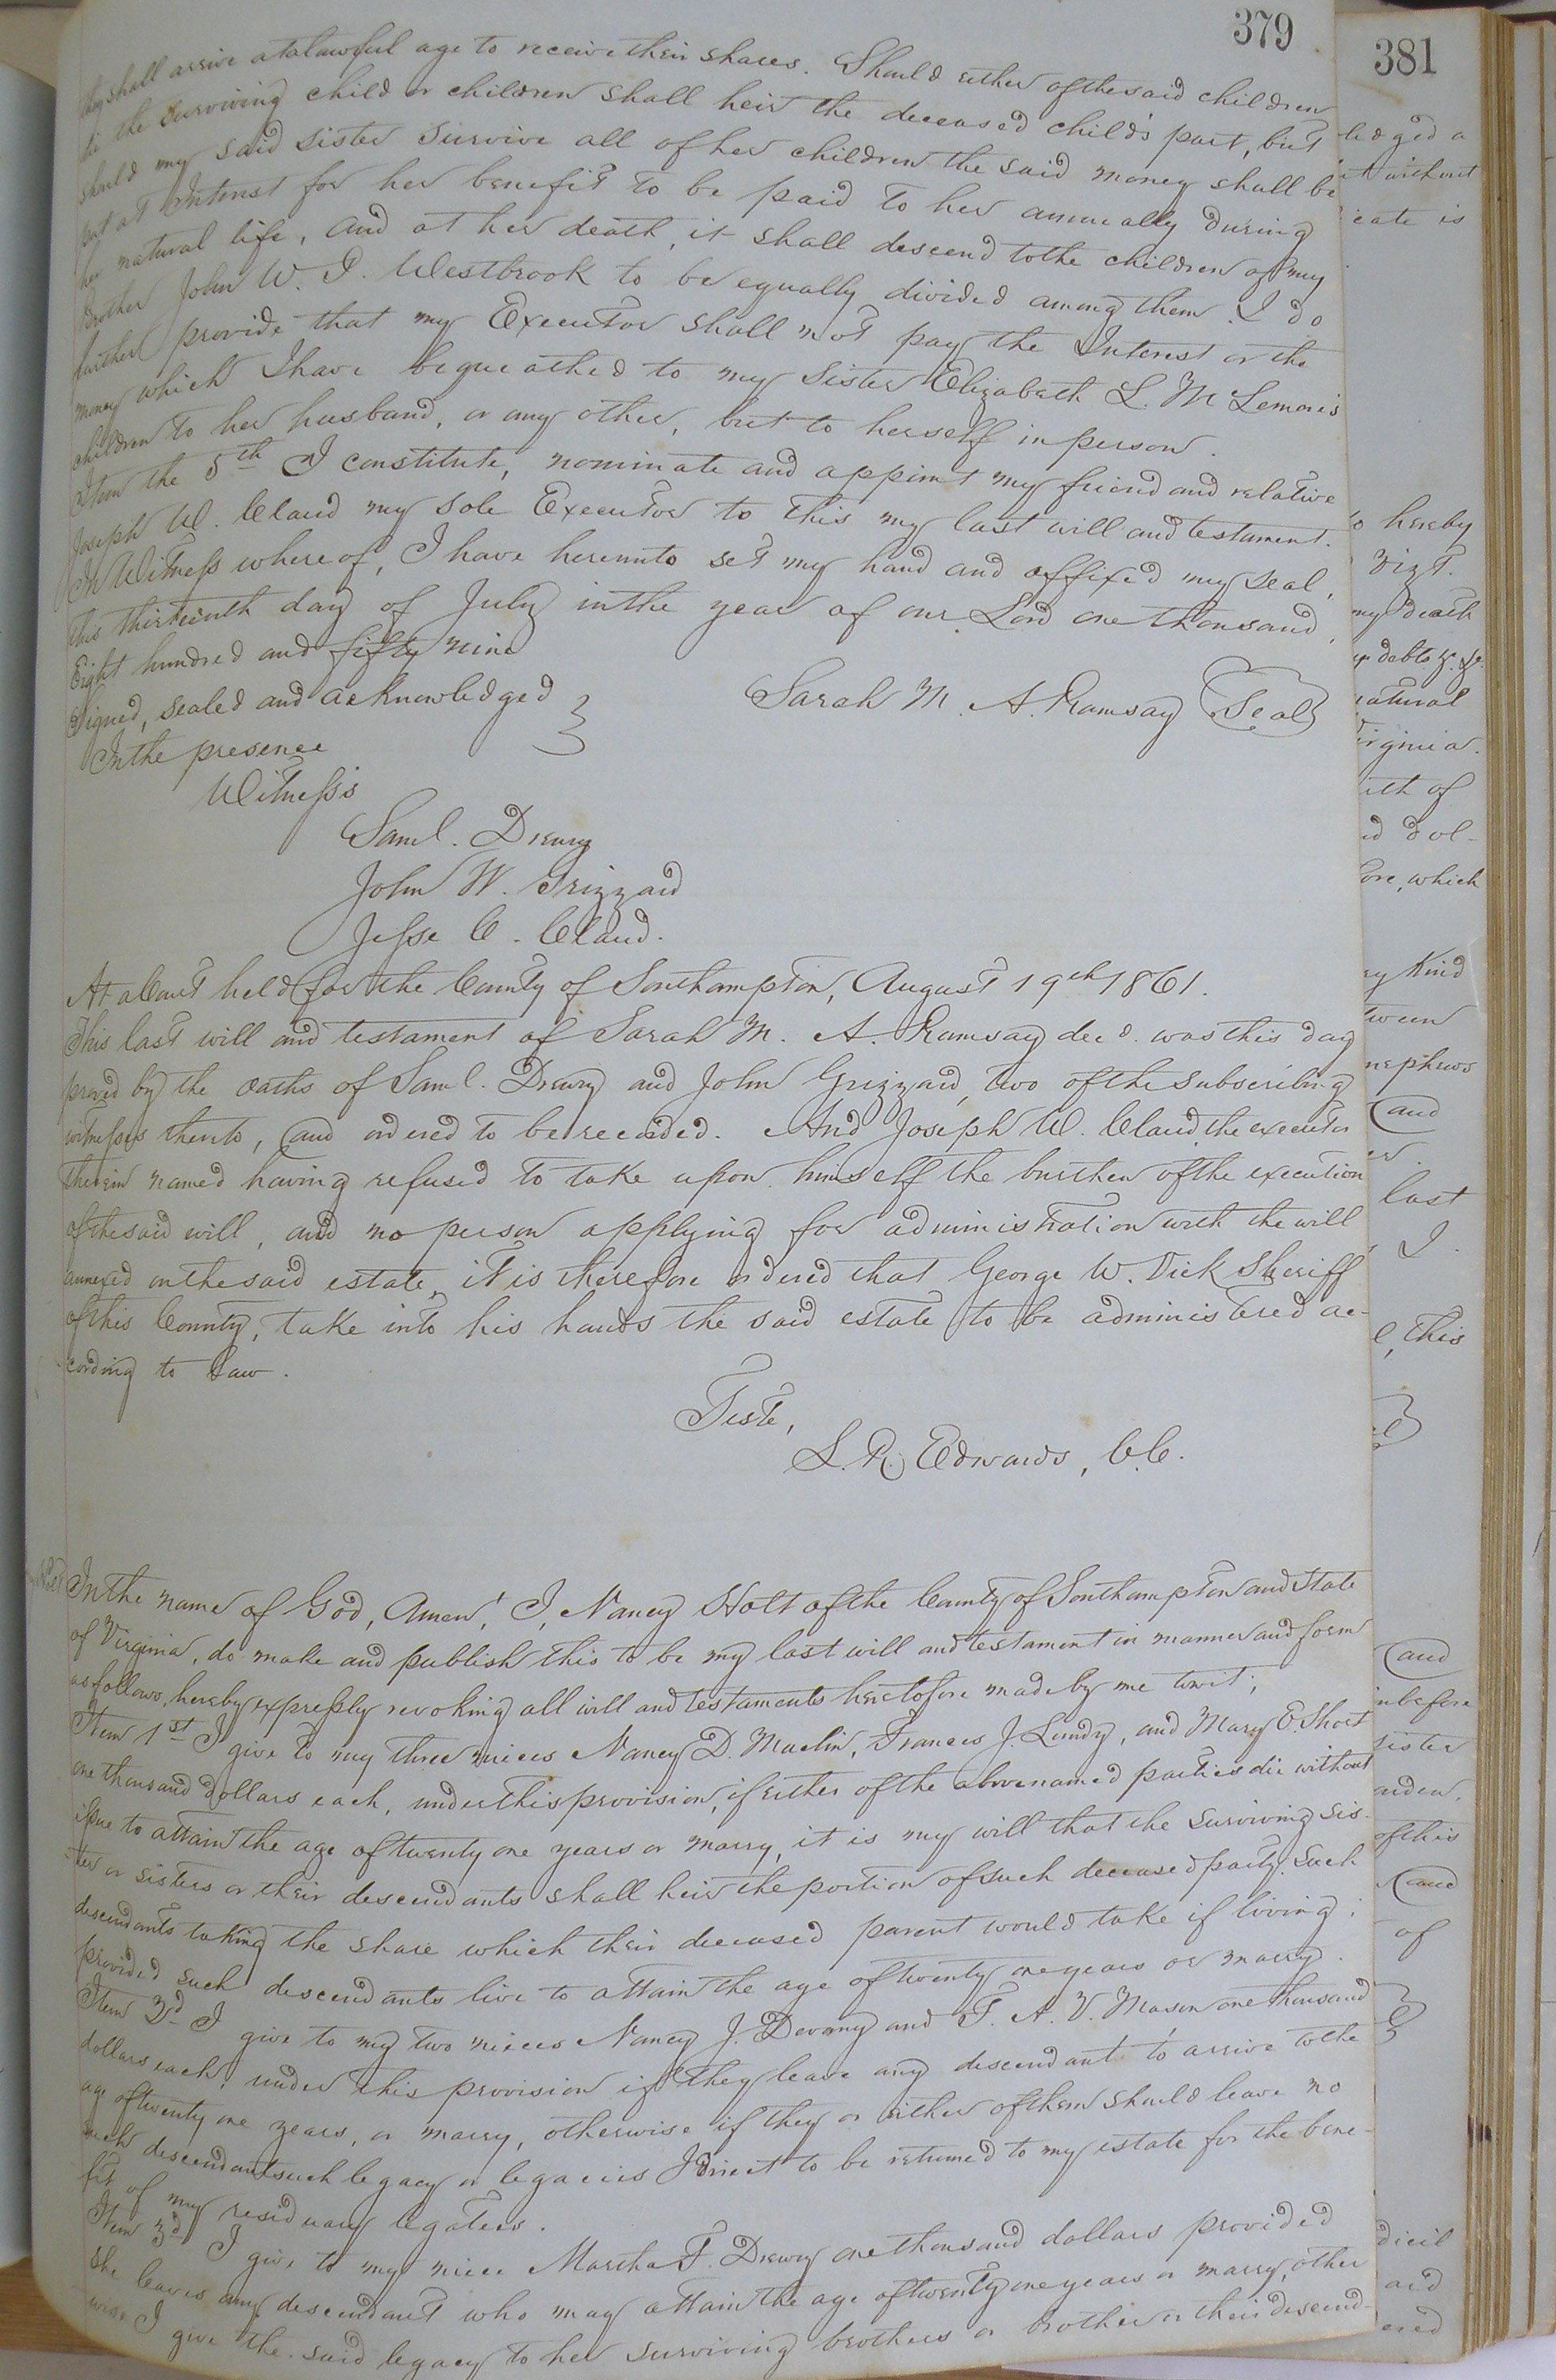 379
they shall arrive at a lawful age to receive their shares. Should either of the said children
die the surviving child or children shall heir the deceased child's part, but
should my said sister survive all of her children the said money shall be
put at Interest for her benefit to be paid to her annually during
her natural life, and at her death, it shall descend to the children of my
Brother John W. P. Westbrook to be equally divided among them. I do
further provide that my Executor shall not pay the Interest or the
money which I have bequeathed to my sister Elizabeth L. M Lemons
children to her husband, or any other, but to herself in person.
Item the 5th I constitute, nominate and appoint my friend and relative
Joseph W. Claud my sole Executor to this my last will and testament.
In Witness where of, I have hereunto set my hand and affixed my seal,
this thirteenth day of July in the year of our Lord one thousand,
Eight hundred and fifty nine
Signed, sealed and acknowledged
Sarah M. A. Ramsay Seal
In the presence
Witness's
Saml. Drewry
John W. Grizzard
Jesse C. Claud.
At a Court held for the County of Southampton, August 19th 1861.
This last will and testament of Sarah M. A. Ramsay decd. was this day
proved by the oaths of Saml. Drewry and John Grizzard, two of the subscribing
witnesses thereto, and ordered to be recorded. And Joseph W. Claud, the executor
therein named having refused to take upon himself the burthen of the execution
of the said will, and no person applying for administration with the will
annexed on the said estate, it is therefore ordered that George W. Vick Sheriff
of this County, take into his hands the said estate to be administered ac-
cording to Law.
Teste,
L. R. Edwards, C.C.
In the name of God, Amen! I, Nancy Holt of the County of Southampton and State
of Virginia, do make and publish this to be my last will and testament in manner and form
as follows, hereby expressly revoking all will and testaments heretofore made by me towit;
Item 1st I give to my three nieces Nancy D. Maclin, Frances J. Lundy, and Mary E. Short
one thousand dollars each, under this provision, if either of the above named parties die without
issue to attain the age of twenty one years or marry, it is my will that the surviving sis-
ter or sisters or their descendants shall heir the portion of such deceased party. Such
descendants taking the share which their deceased parent would take if living;
provided such descendants live to attain the age of twenty one years or marry.
Item 2d I give to my two nieces Nancy J. Devany and F. A. V. Mason one thousand
dollars each, under this provision if they leave any descendants to arrive to the
age of twenty one years, or marry, otherwise if they or either of them should leave no
such descendant such legacy or legacies I direct to be returned to my estate for the bene-
fit of my residuary legatees.
Item 3d I give to my niece Martha F. Drewry one thousand dollars provided
she leaves any descendant who may attain the age of twenty one years or marry, other
wise I give the said legacy to her surviving brothers or brother or their descend-
381
hereby
vizt.
my death
debts
natural
Virginia.
of
dol-
which
Kind
nephews
and
last
I
this
and
sister
of this
and
of